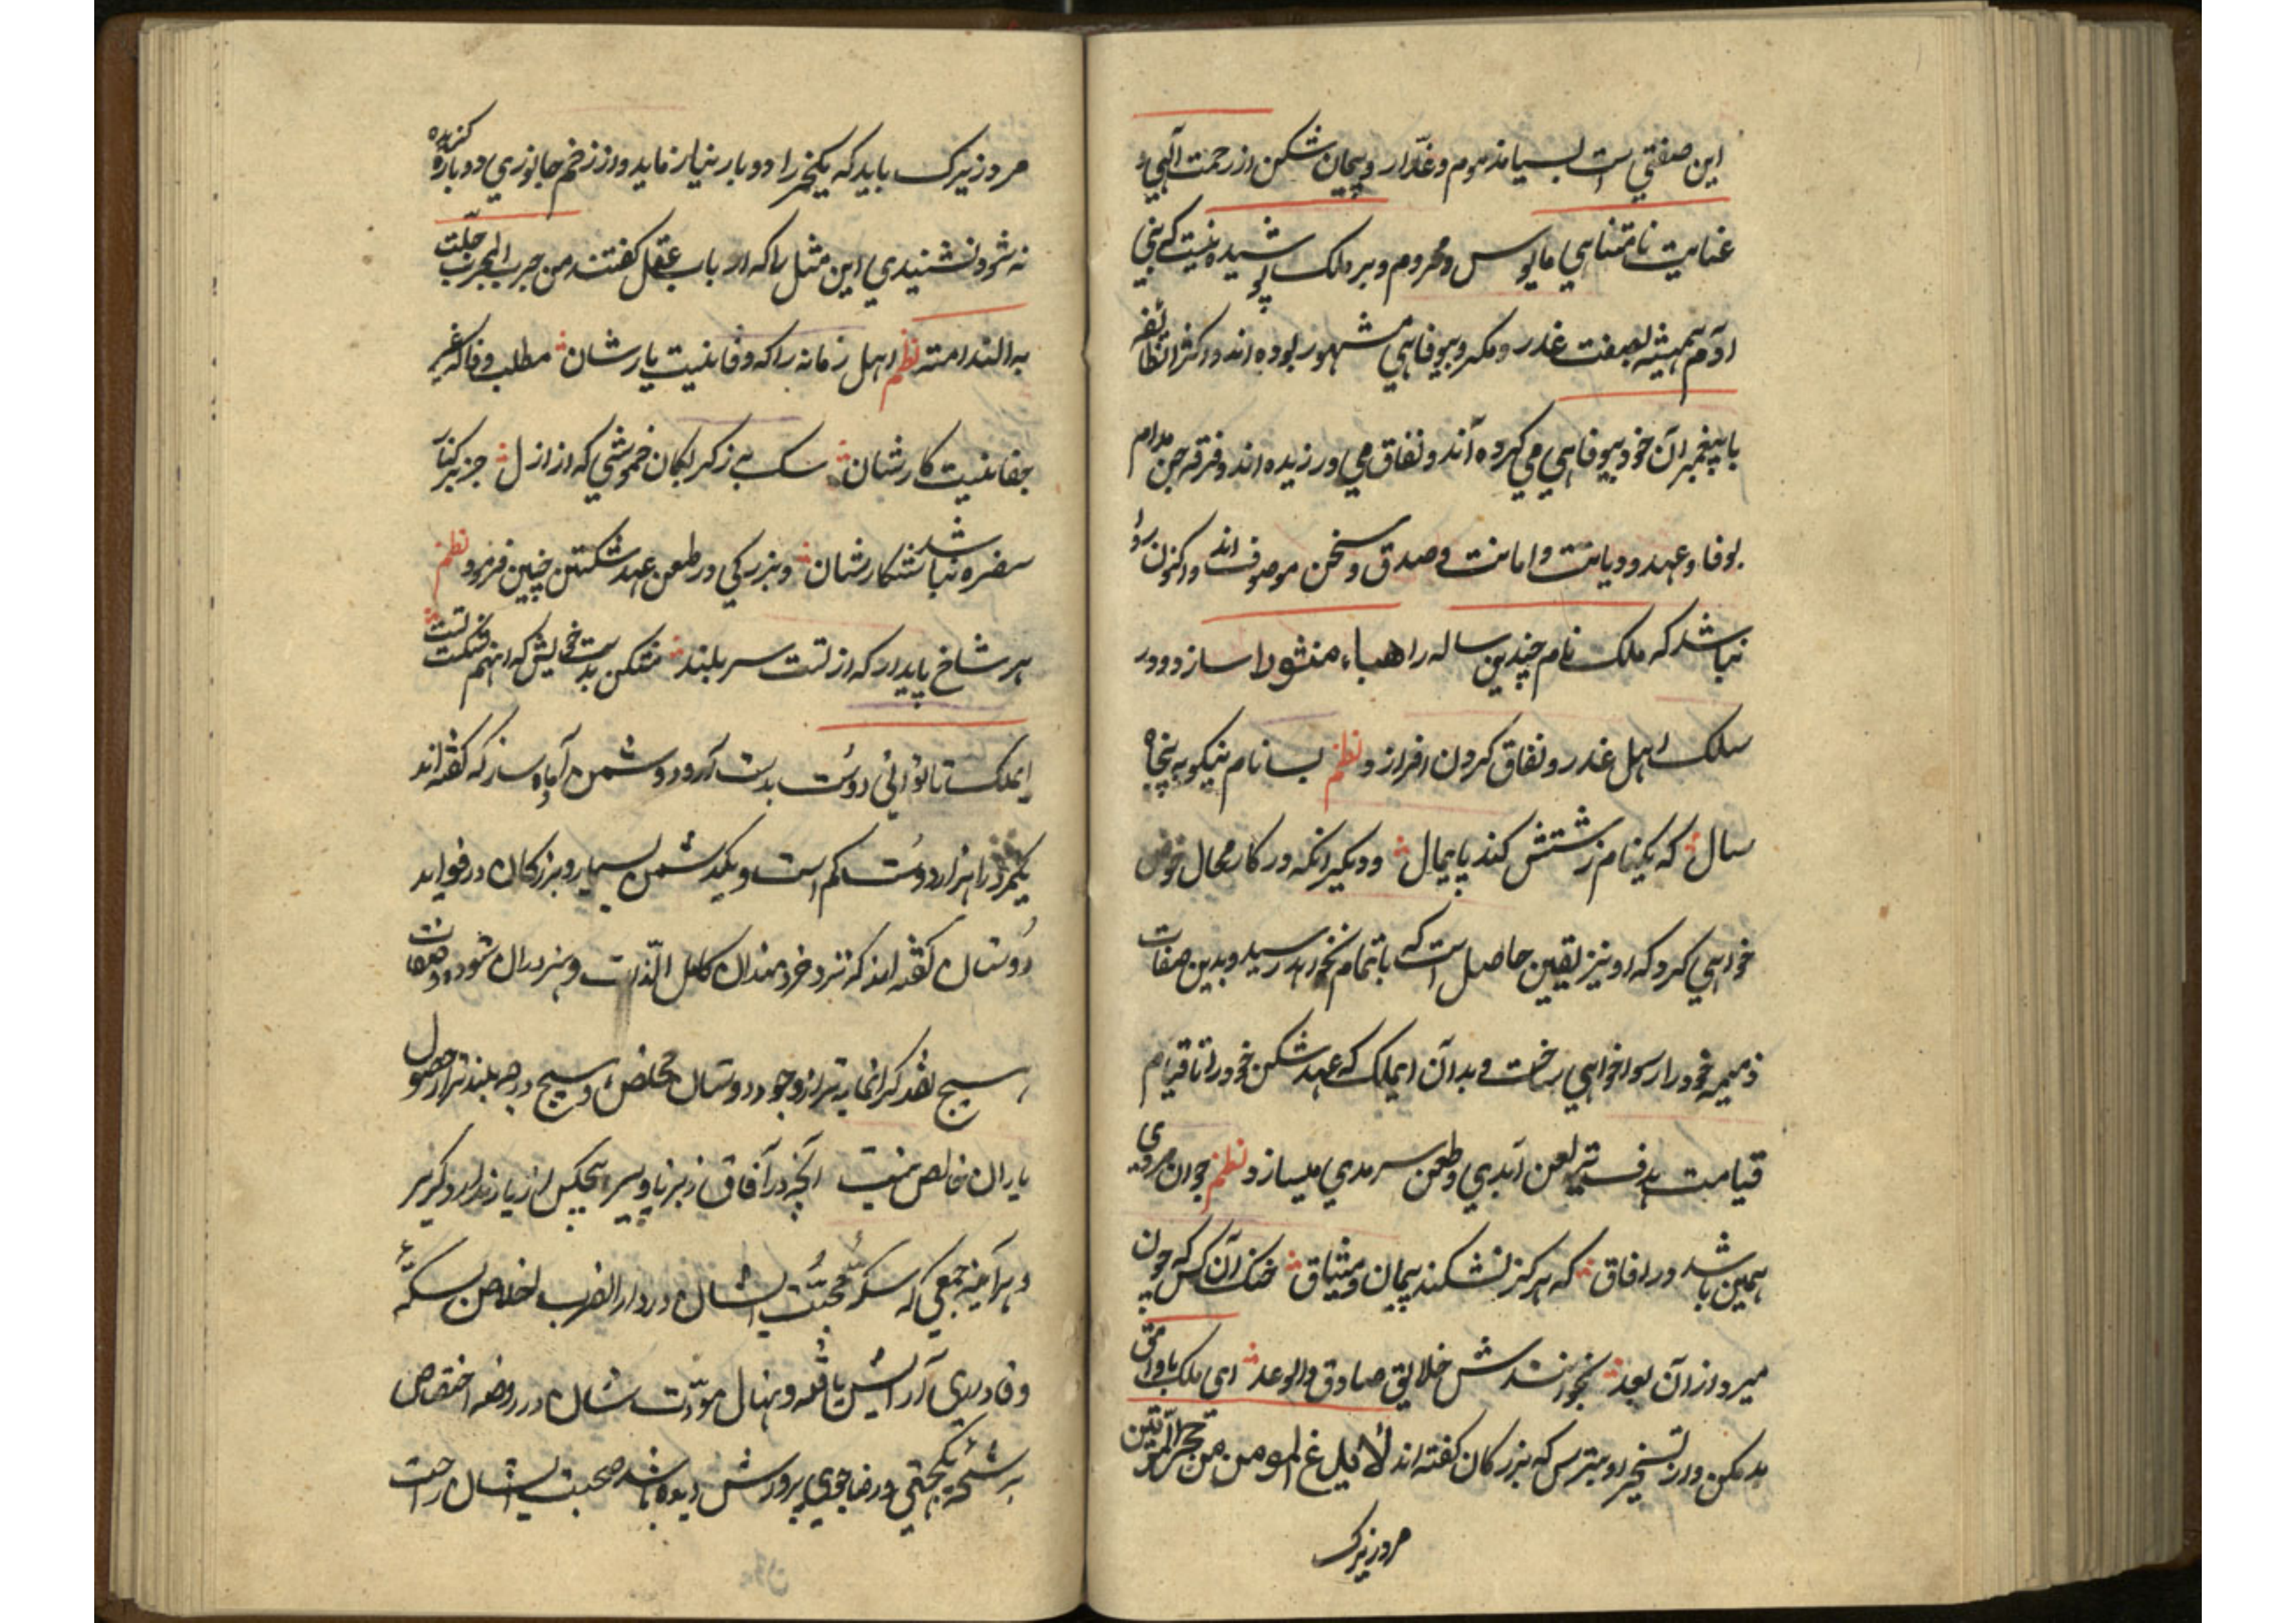 این صفتی است بسیار مذموم و غدّار و پیمان شکن از رحمت آلهی و
عنایت نامتناهی مایوس و محروم و بر ملک پوشیده نیست که بنی
آدم همیشه بصفت غدر و مکر و بیوفاهی مشهور بوده اند و اکثر انطائفه
با پیغمبران خود بیوفاهی می کرده آند و نفاق می ورزیده اند و فرقه جن مدام
بوفا و عهد و دیانت و امانت و صدق و سخن موصوف اند و اکنون روا
نباشد که ملک نام چندین ساله را هباء منثورا سازد و در
سلک اهل غدر و نفاق کردن افرازد نظم بسا نام نیکو به پنجاه
سال که یک نام زشتش کند پایمال و دیکر انکه در کار محال خوض
خواهی کرد که او نیز یقین حاصل است که باتمام نخواهد رسید و بدین صفات
ذمیمه خود را رسوا خواهی ساخت و بدان ایملک که عهد شکن خود را تا قیام
قیامت هدف تیر لعن ابدی و طعن سرمدی میسازد نظم جوان مردی
همین باشد در افاق که هرکز نشکند پیمان و میثاق خنک آن کس که چون
میرد از آن بعد بخوانندش خلایق صادق والوعد ای ملک با وامق
بد مکن و از تسخیر او بترس که بزرکان کفته اند لا یلدغ المومن من حجر المرّتین
مرد زیرک
مرد زیرک باید که یکچیز را دو بار نیازماید و از زخم جانوری دوباره کزیده
نه شود نشنیدی این مثل را که ارباب عقل کفتند من جرب المجرب حلّت
به الندامته نظم اهل زمانه را که وفا نیست یارشان مطلب وفا که غیر
جفا نیست کارشان سک به ز کربکان خموشی که از ازل جز بر کنار
سفره نباشد شکارشان و بزرکی در طعن عهد شکستن چنین فرمود نظم
هر شاخ پایدار که از تست سر بلند مشکن بدست خویش که انهم شکست تست
ایملک تا توانی دوست بدست آر و دشمن آماده ساز که کفته اند
یکمرد را هزار دوست کم است و یکدشمن بسیار و بزرکان در فواید
دوستان کفته اند که نزد خردمندان کامل الذات و هنروران ستوده صفات
هیچ نقد کرانمایه تر از وجود دوستان مخلص و هیچ درجه بلندتر از حصول
یاران خالص نیست آنچه در آفاق ز برنا و پیر هیچکس از یار ندارد کزیر
و هر آینه جمعی که سکهٔ محبّت ایشان در دار الضرب اخلاص بسکّهٔ
وفاداری آرایش یافته و نهال مودّت شان در روضه اختصاص
برشحه یکجهتی و رضاجوی پرورش دیده باشد صحبت ایشان راحت